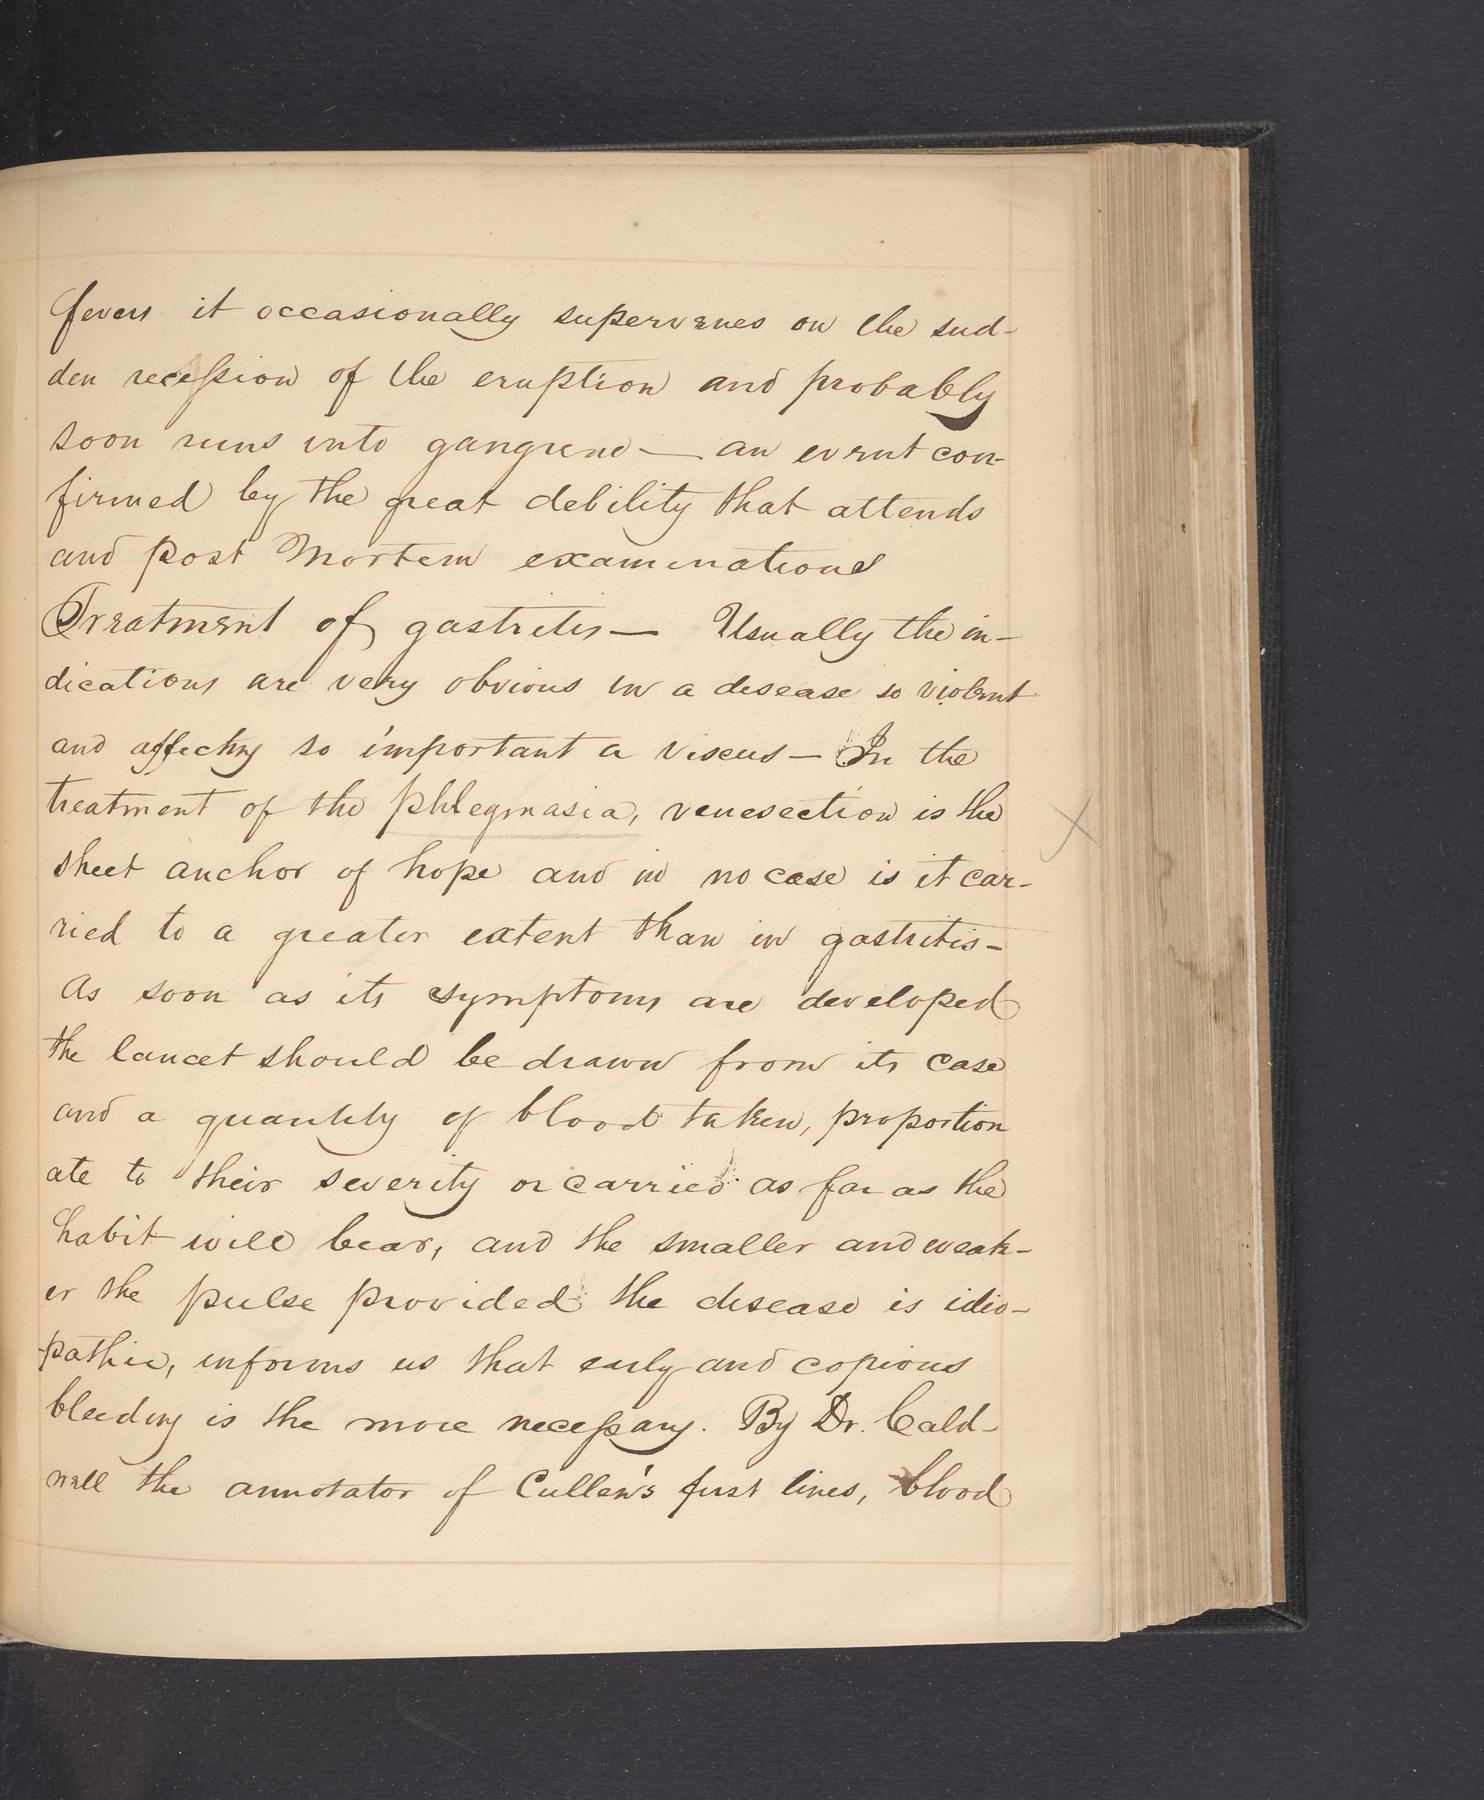 fevers it occasionally supervenes on the sud-
den recession of the eruption and probably
soon runs into gangrene — an event con-
firmed by the great debility that attends
and post Mortem examinations
Treatment of gastritis — Usually the in-
dications are very obvious in a disease so violent
and affecting so important a viscus — In the
treatment of the phlegmasia, venesection is the
sheet anchor of hope and in no case is it car-
ried to a greater extent than in gastritis -
As soon as its symptoms are developed
the lancet should be drawn from its case
and a quantity of blood taken, proportion
ate to their severity or carried as far as the
habit will bear, and the smaller and weak-
er the pulse provided the disease is idio-
pathic, informs us that early and copious
bleeding is the more necessary. By Dr. Cald-
well the annotator of Cullen's first lines, blood